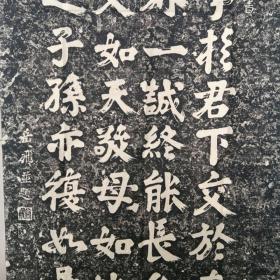 於君下交於
一誠終能長
父如天敬母如
之子孫亦復如是
岳飛